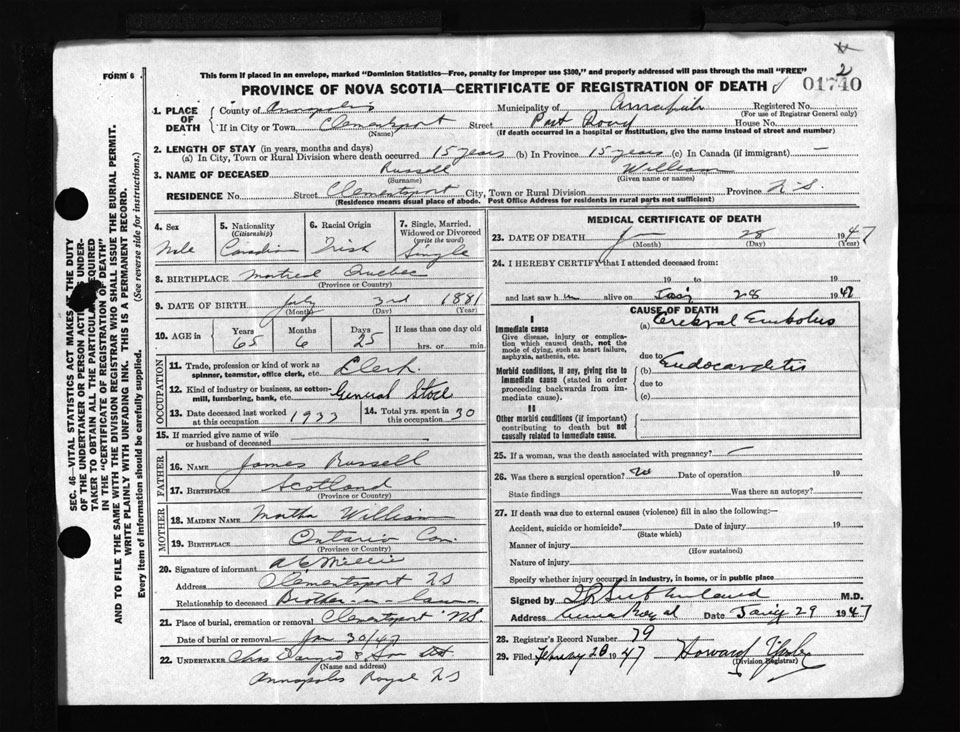 2
FORM 6
This form if placed in an envelope, marked "Dominion Statistics—Free, penalty for improper use $300," and properly addressed will pass through the mail "FREE"
PROVINCE OF NOVA SCOTIA—CERTIFICATE OF REGISTRATION OF DEATH
01740
1. PLACE OF DEATH
County of Annapolis Municipality of Annapolis Registered No.
(For use of Registrar General only)
If in City or Town Clementsport Street Post Road House No.
(Name) (If death occurred in a hospital or institution, give the name instead of street and number)
2. LENGTH OF STAY (in years, months and days)
(a) In City, Town or Rural Division where death occurred 15 years (b) In Province 15 years (c) In Canada (if immigrant) —
3. NAME OF DECEASED Russell William
(Surname) (Given name or names)
RESIDENCE No. Street Clementsport City, Town or Rural Division Province N.S.
(Residence means usual place of abode. Post Office Address for residents in rural parts not sufficient)
4. Sex Male
5. Nationality (Citizenship) Canadian
6. Racial Origin Irish
7. Single, Married, Widowed or Divorced (write the word) Single
8. BIRTHPLACE Montreal Quebec
(Province or Country)
9. DATE OF BIRTH July 3rd 1881
(Month) (Day) (Year)
10. AGE in Years 65 Months 6 Days 25 If less than one day old
hrs. or min.
OCCUPATION
11. Trade, profession or kind of work as spinner, teamster, office clerk, etc. Clerk
12. Kind of industry or business, as cotton-mill, lumbering, bank, etc. General Store
13. Date deceased last worked at this occupation 1933
14. Total yrs. spent in this occupation 30
15. If married give name of wife or husband of deceased
FATHER
16. NAME James Russell
17. BIRTHPLACE Scotland
(Province or Country)
MOTHER
18. MAIDEN NAME Martha William
19. BIRTHPLACE Ontario Can.
(Province or Country)
20. Signature of informant
Address Clementsport NS
Relationship to deceased Brother in Law
21. Place of burial, cremation or removal Clementsport NS.
Date of burial or removal Jan 30/47
22. UNDERTAKER Chas & Son
(Name and address)
Annapolis Royal NS
MEDICAL CERTIFICATE OF DEATH
23. DATE OF DEATH Jan 28 1947
(Month) (Day) (Year)
24. I HEREBY CERTIFY that I attended deceased from:
19 to 19
and last saw him alive on Jany 28 1947
CAUSE OF DEATH
I
Immediate cause
Give disease, injury or complication which caused death, not the mode of dying, such as heart failure, asphyxia, asthenia, etc.
(a) Cerebral Embolus
due to
Morbid conditions, if any, giving rise to immediate cause (stated in order proceeding backwards from immediate cause).
(b) Endocarditis
due to
(c)
II
Other morbid conditions (if important) contributing to death but not causally related to immediate cause.
25. If a woman, was the death associated with pregnancy? —
26. Was there a surgical operation? no Date of operation 19
State findings Was there an autopsy?
27. If death was due to external causes (violence) fill in also the following:—
Accident, suicide or homicide? Date of injury 19
(State which)
Manner of injury
(How sustained)
Nature of injury
Specify whether injury occurred in industry, in home, or in public place
Signed by Sutherland M.D.
Address Anna Royal Date Jany 29 1947
28. Registrar's Record Number 79
29. Filed February 28 1947 Howard
(Division Registrar)
SEC. 46—VITAL STATISTICS ACT MAKES IT THE DUTY
OF THE UNDERTAKER OR PERSON ACTING AS UNDER-
TAKER TO OBTAIN ALL THE PARTICULARS REQUIRED
IN THE "CERTIFICATE OF REGISTRATION OF DEATH"
AND TO FILE THE SAME WITH THE DIVISION REGISTRAR WHO SHALL ISSUE THE BURIAL PERMIT.
WRITE PLAINLY WITH UNFADING INK. THIS IS A PERMANENT RECORD.
Every item of information should be carefully supplied. (See reverse side for instructions.)